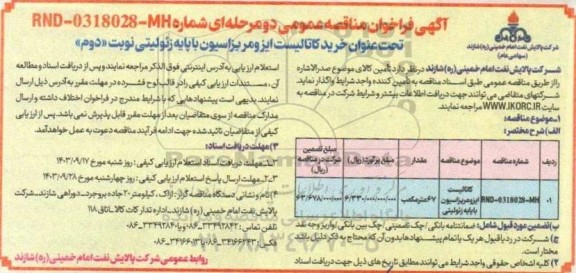 آگهی فراخوان مناقصه عمومی دو مرحله‌ای شماره RND-0318028-MH
تحت عنوان خرید کاتالیست ایزومریزاسیون با پایه زئولیتی نوبت «دوم»
شرکت پالایش نفت امام خمینی (ره) شازند
(سهامی عام)
شرکت پالایش نفت امام خمینی (ره) شازند در نظر دارد تأمین کالای موضوع صدرالاشاره
را از طریق مناقصه عمومی طبق اسناد مناقصه به تأمین کننده واجد شرایط واگذار نماید.
شرکتهای متقاضی می‌توانند جهت دریافت اطلاعات بیشتر و شرایط شرکت در مناقصه به
سایت WWW.IKORC.IR مراجعه نمایند.
۱-موضوع مناقصه:
الف) شرح مختصر:
ردیف
شماره مناقصه
موضوع مناقصه
مقدار
مبلغ برآورد (ریال)
مبلغ تضمین شرکت در مناقصه (ریال)
۰۱
RND-0318028-MH
کاتالیست ایزومریزاسیون با پایه زئولیتی
۶۷ مترمکعب
ب) تضمین مورد قبول شامل: ضمانتنامه بانکی / چک تضمینی / چک بین بانکی / واریز وجه نقد
ج) شرکت در رد یا قبول هر یک یا تمام پیشنهادها بدون آن که محتاج به ذکر دلیل باشد
مختار است.
۲) کلیه اشخاص حقوقی واجد شرایط می‌توانند مطابق تاریخ های ذیل جهت دریافت اسناد
استعلام ارزیابی به آدرس اینترنتی فوق الذکر مراجعه نمایند و پس از دریافت اسناد و مطالعه
آن، مستندات ارزیابی کیفی را در قالب لوح فشرده در مهلت مقرر به آدرس ذیل ارسال
نمایند. بدیهی است پیشنهادهایی که با شرایط مندرج در فراخوان اختلاف داشته و ارسال
مدارک مناقصه از سوی متقاضیان بعد از مهلت مقرر قابل پذیرش نمی باشد. پس از ارزیابی
کیفی از متقاضیان تائید شده جهت ادامه فرآیند مناقصه دعوت به عمل خواهد آمد.
۳) مهلت دریافت اسناد:
مهلت دریافت اسناد استعلام ارزیابی کیفی: روز شنبه مورخ ۱۴۰۳/۰۹/۱۷
۳-۲ مهلت ارسال پاسخ استعلام ارزیابی کیفی: روز چهارشنبه مورخ ۱۴۰۳/۰۹/۲۸
۴) نام و نشانی دستگاه مناقصه گزار: اراک، کیلومتر ۲۰ جاده بروجرد - دوراهی شازند - شرکت
پالایش نفت امام خمینی (ره) شازند، اداره تدارکات کالا - اتاق ۱۱۸
روابط عمومی شرکت پالایش نفت امام خمینی (ره) شازند